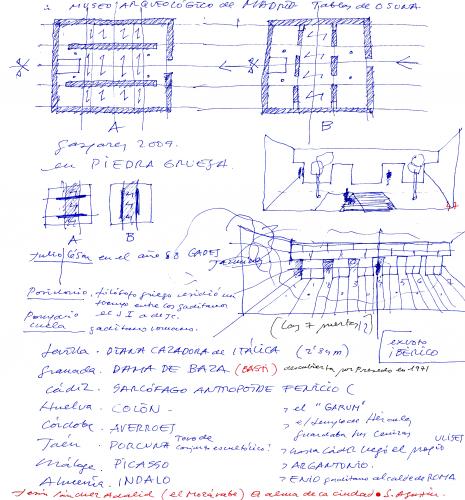 MUSEO ARQUEOLÓGICO de MADRID Tablas de OSUNA
A
B
2009.
en PIEDRA GRUESA.
A
B
Julio César en el año 68 GADES
Posidonio. filósofo griego residió un
tiempo entre los gaditanos
el S I a de JC.
gaditanos romanos.
(Las 7 puertas?)
exvoto
IBÉRICO
Sevilla. DIANA CAZADORA de ITÁLICA
Granada. DAMA DE BAZA (BASTI) descubierta por Presedo en 1971
Cádiz. SARCÓFAGO ANTROPOIDE FENICIO (
Huelva. COLÓN -
> el "GARUM"
Córdoba. AVERROES
> el templo de Hércules
guardaba las cenizas
Jaén. PORCUNA Toro de
conjunto escultórico?
> hasta Cádiz llegó el propio
ULISES
Málaga. PICASSO
> ARGANTONIO.
Almería. INDALO
> ENIO
ROMA
Jesús Sánchez Adalid (el Mozárabe) El alma de la ciudad • S. Agustín